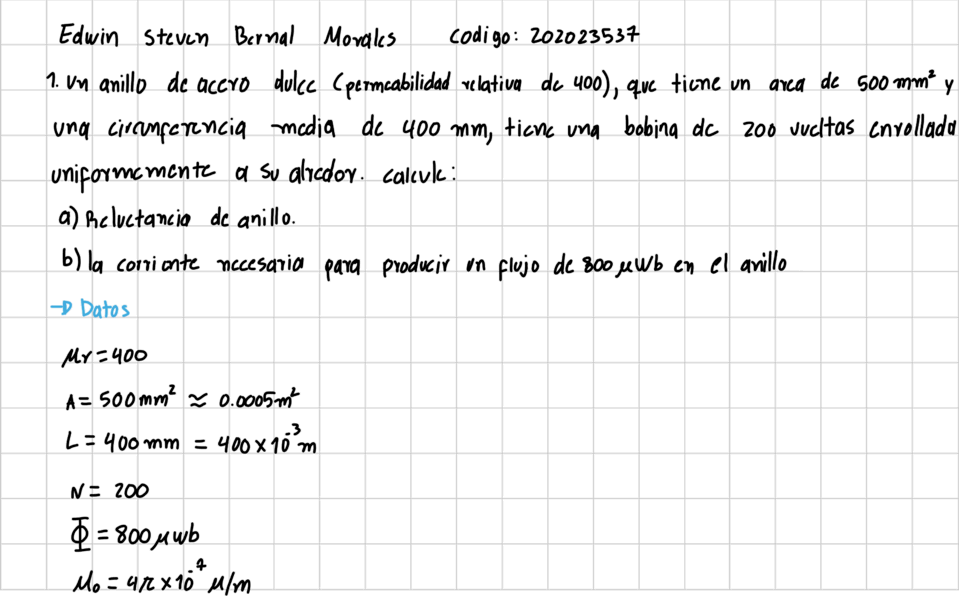 Edwin Steven Bernal Morales codigo: 202023537
1. Un anillo de acero dulce (permeabilidad relativa de 400), que tiene un area de 500 mm² y
una circunferencia media de 400 mm, tiene una bobina de 200 vueltas enrollada
uniformemente a su alredor. calcule:
a) Reluctancia de anillo.
b) la corriente necesaria para producir un flujo de 800 μWb en el anillo
→ Datos
μr = 400
A = 500 mm² ≈ 0.0005 m²
L = 400 mm = 400 × 10⁻³ m
N = 200
Φ = 800 μwb
μ₀ = 4π × 10⁻⁷ μ/m